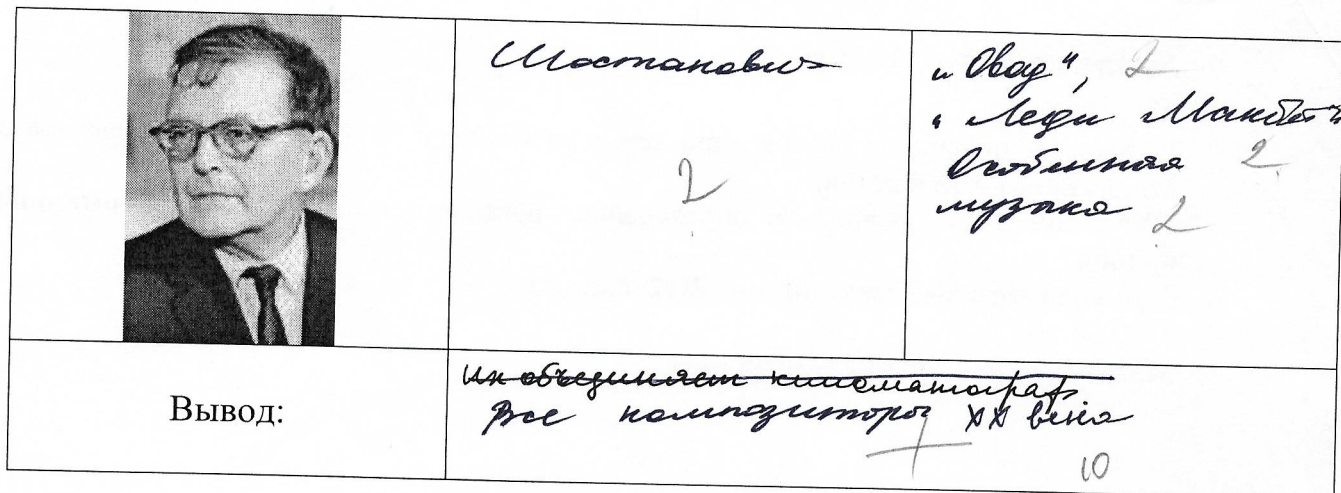 Шостакович
2
„Овод“, 2
„Леди Макбет“
Особенная 2
музыка 2
Вывод:
Их объединяет кинематограф
Все композиторы XX века
+
10